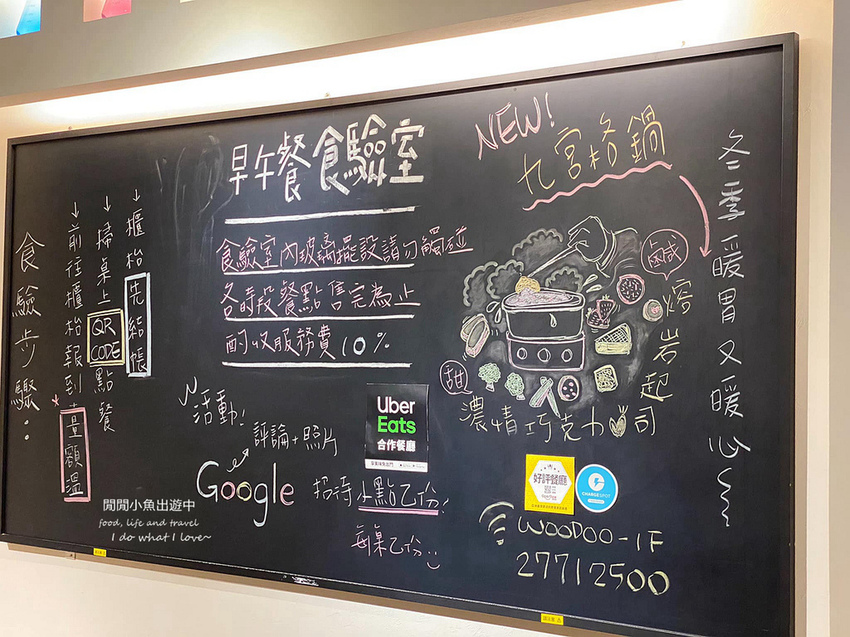 早午餐食驗室
食驗室內玻璃擺設請勿觸碰
各時段餐點售完為止
酌收服務費10%
食驗步驟:
↓前往櫃枱報到 量額溫
↓掃桌上QR CODE點餐
↓櫃枱先結帳
活動!
評論+照片
Google
招待小點乙份!
每桌乙份
Uber
Eats
合作餐廳
NEW!
九宮格鍋
冬季暖胃又暖心
鹹
熔岩起司
甜
濃情巧克力
好評餐廳
CHARGESPOT
WOODOO-1F
27712500
閒閒小魚出遊中
food, life and travel
I do what I love~